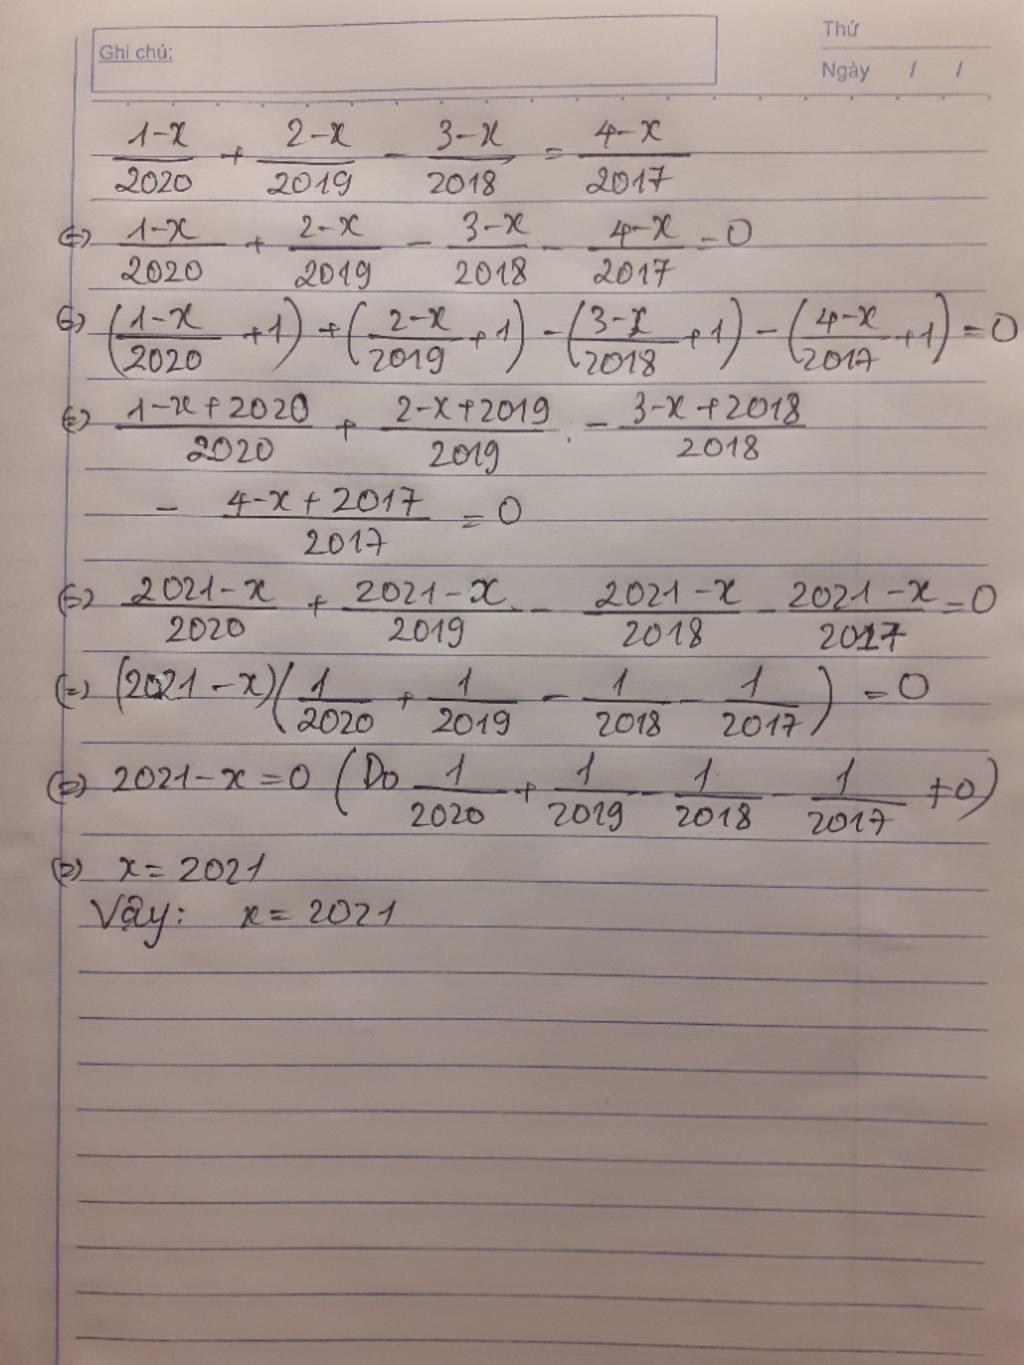 Ghi chú:
Thứ
Ngày / /
(1-x)/2020 + (2-x)/2019 - (3-x)/2018 = (4-x)/2017
(=) (1-x)/2020 + (2-x)/2019 - (3-x)/2018 - (4-x)/2017 = 0
(=) ((1-x)/2020 + 1) + ((2-x)/2019 + 1) - ((3-x)/2018 + 1) - ((4-x)/2017 + 1) = 0
(=) (1-x+2020)/2020 + (2-x+2019)/2019 - (3-x+2018)/2018
- (4-x+2017)/2017 = 0
(=) (2021-x)/2020 + (2021-x)/2019 - (2021-x)/2018 - (2021-x)/2017 = 0
(=) (2021-x)(1/2020 + 1/2019 - 1/2018 - 1/2017) = 0
(=) 2021-x=0 (Do 1/2020 + 1/2019 - 1/2018 - 1/2017 ≠ 0)
(=) x = 2021
Vậy: x = 2021